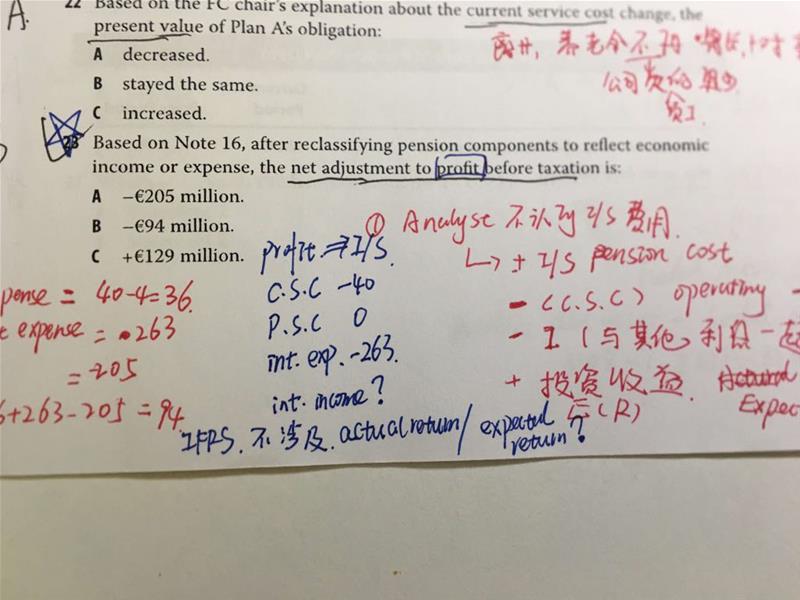 A.
22 Based on the FC chair's explanation about the current service cost change, the
present value of Plan A's obligation:
A decreased.
B stayed the same.
C increased.
养老金不
公司
员工
23 Based on Note 16, after reclassifying pension components to reflect economic
income or expense, the net adjustment to profit before taxation is:
A –€205 million.
B –€94 million.
C +€129 million.
① Analyse 不认为 I/S 费用.
↳ ± I/S pension cost
- (C.S.C) operating
- I (与其他利息一起
+ 投资收益.
E(R) Expec
profit ⇒ I/S.
C.S.C -40
P.S.C 0
int. exp. -263.
int. income?
IFRS. 不涉及. actual return/ expected return?
pense = 40-4=36.
t expense = 263
= -205
6+263-205=94